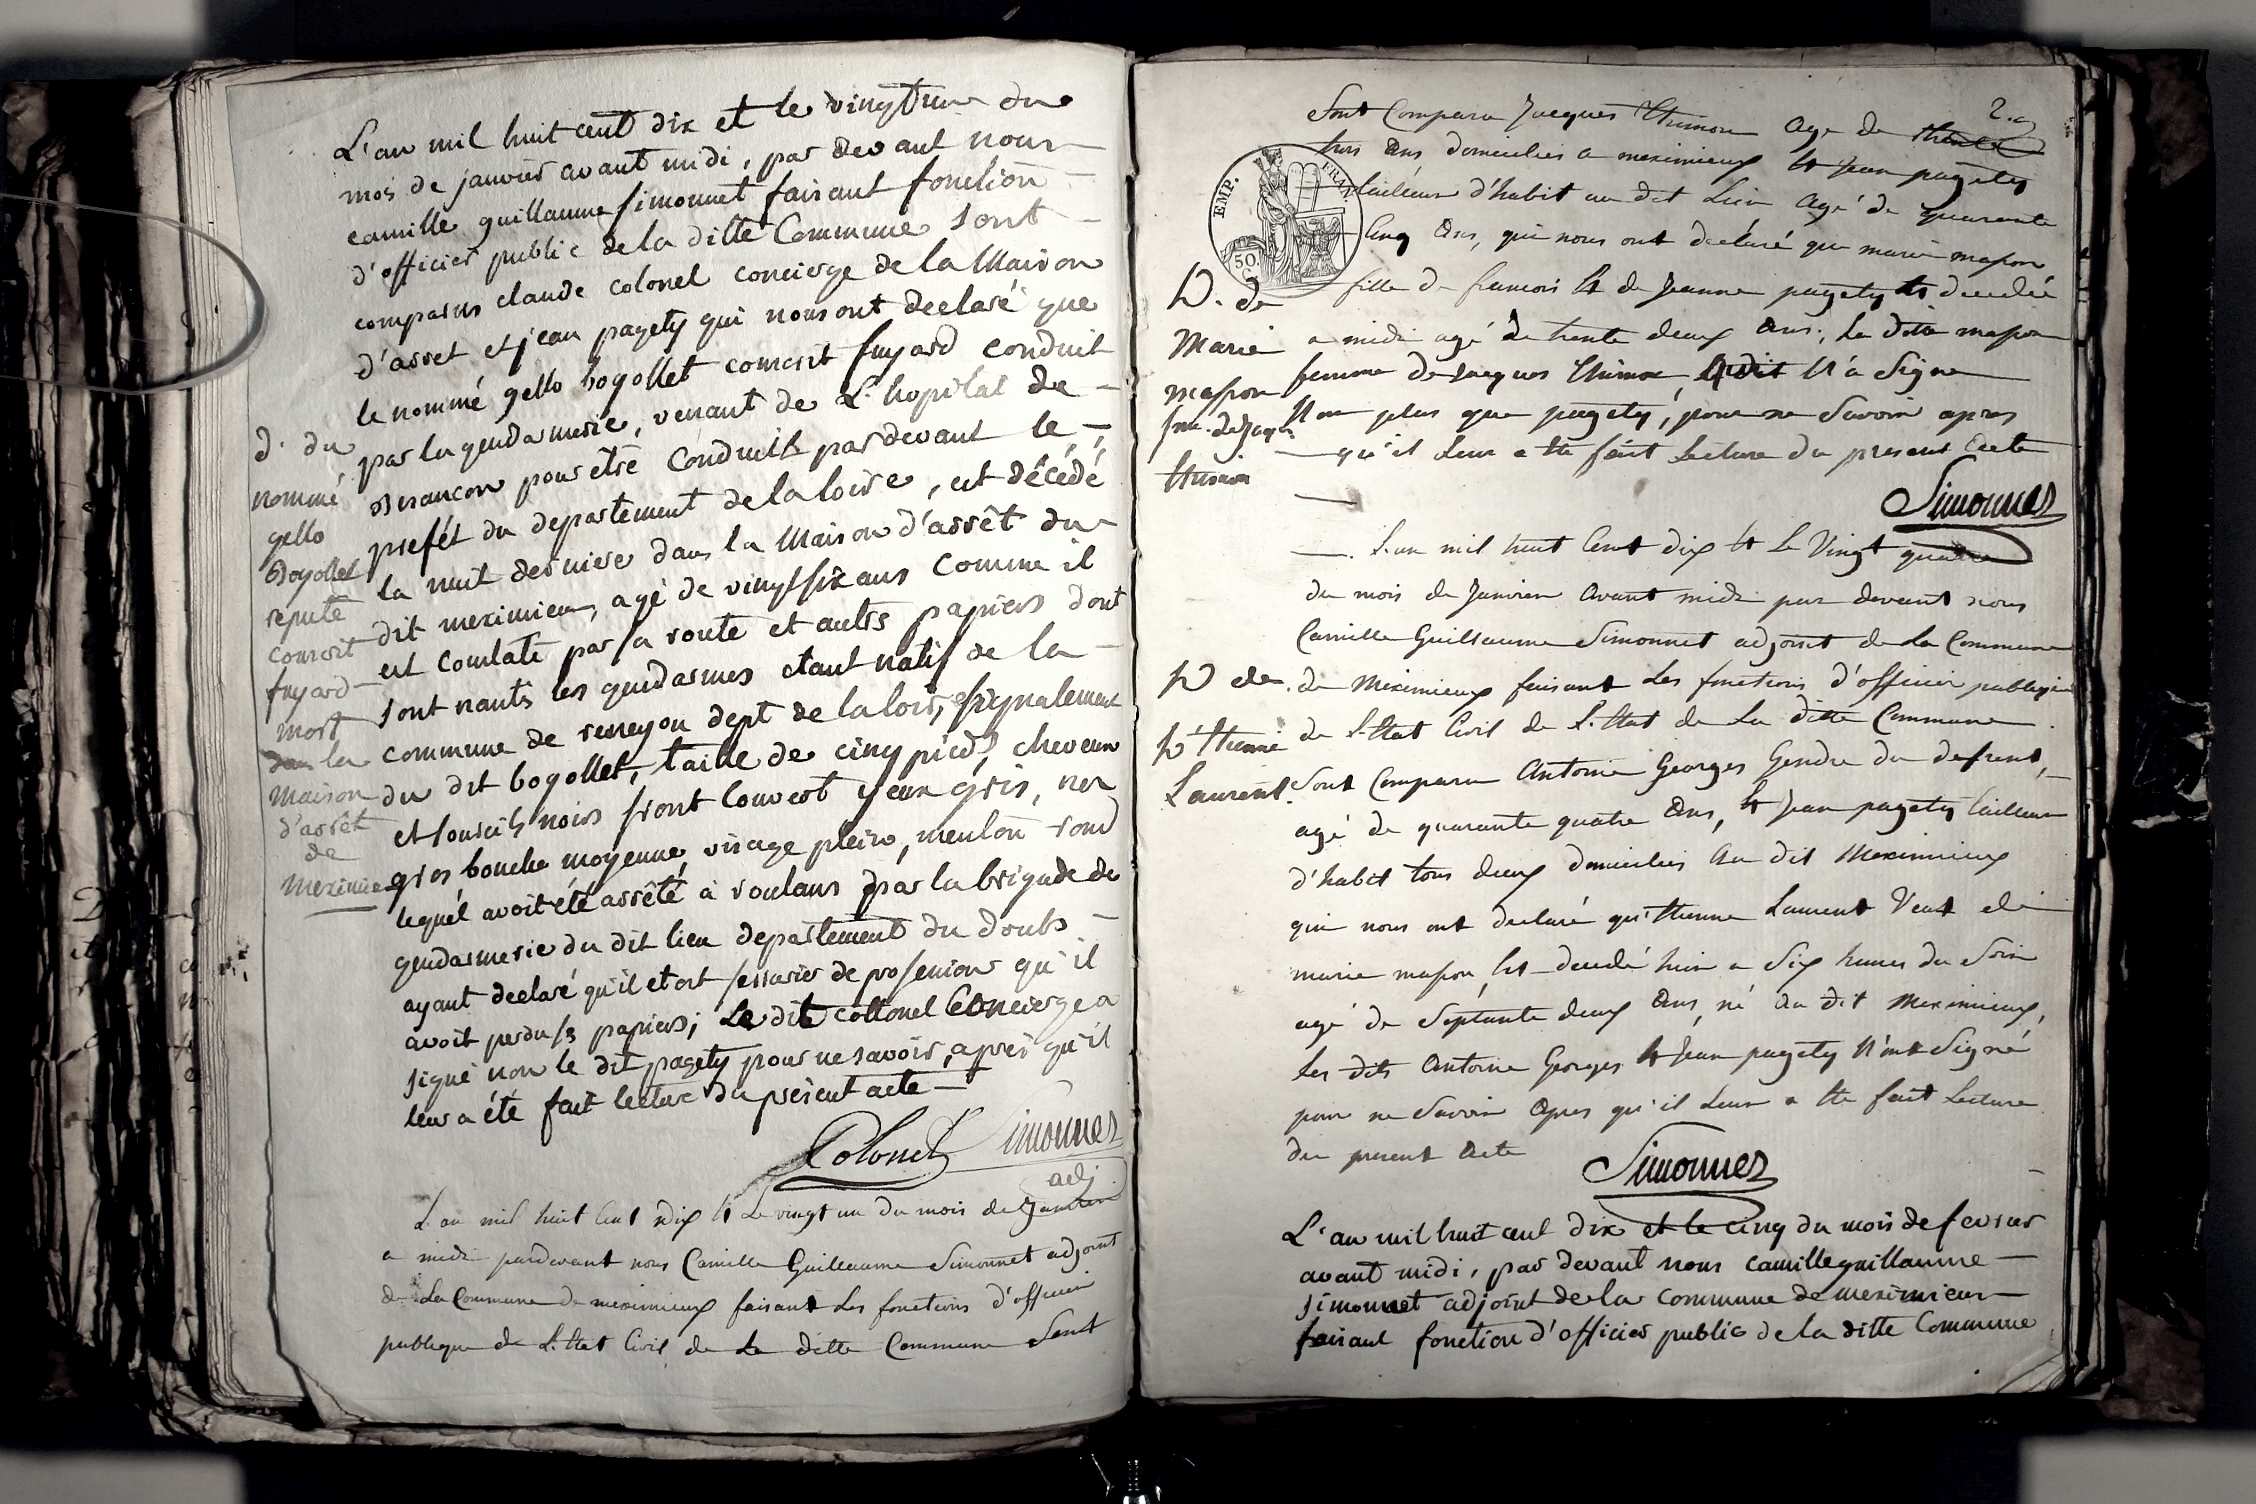 L'an mil huit cent dix et le vingt un du
mois de janvier avant midi, par devant nous
camille guillaume simonnet faisant fonction
d'officier public de la ditte Commune sont
comparus claude colonel concierge de la Maison
d'arret et jean pagety qui nous ont declaré que
le nommé gello bogollet conscrit fuyard conduit
par la gendarmerie, venant de L'hopital de
Besancon pour être conduit par devant le
prefét du departement de la loire, est décédé
la nuit derniere dans la Maison d'arrêt du
dit meximieux, agé de vingt six ans comme il
est constaté par sa route et autres papiers dont
sont nantis les gendarmes etant natif de la
commune de dept de la loire, signalement
du dit bogollet, taille de cinq pieds, cheveux
et sourcils noirs front couvert yeux gris, nez
gros bouche moyenne, visage plein, menton rond
lequél avoit été arrêté a roulans par la brigade de
gendarmerie du dit lieu departement du doubs
ayant declaré qu'il etoit de profession qu'il
avoit perdu ses papiers; Le dit collonel Concierge a
signé non le dit pagety pour ne savoir, après qu'il
leur a été fait lecture du présent acte
Colonel Simonnet
adj
d. du
nommé
gello
Bogollet
repute
conscrit
fuyard
mort
dans la
maison
d'arrêt
de
Meximieux
L'an mil huit Cent dix Et Le vingt un du mois de Janvier
a midi pardevant nous Camille Guillaume Simonnet adjoint
de La Commune de meximieux faisant Les fonctions d'officier
publique de L'Etat Civil de La ditte Commune Sont
2.
Sont Comparu Jacques Thimon age de
trois ans domicilies a meximieux Et Jean pagety
tailleur d'habit au dit Lieu agé de quarante
Cinq ans, qui nous ont declaré que marie masson
fille de francois Et de Jeanne pagety Est decedée
a midi agé de trente deux ans, La ditte masson
femme de Jacques Thimon, N'a Signe
Non plus que pagety, pour ne Savoir apres
qu'il Leur a Ete fait Lecture du present acte
EMP. FRAN.
50. C
D. de
Marie
masson
fme. de Jacq.
thimon
Simonnet
L'an mil huit Cent dix Et Le Vingt quatre
du mois de Janvier avant midi par devant nous
Camille Guillaume Simonnet adjoint de La Commune
de Meximieux faisant Les fonctions d'officier publique
de L'Etat Civil de L'Etat de La ditte Commune
Sont Comparu Antoine Georges Gendre du defunt,
agé de quarante quatre ans, Et Jean pagety tailleur
d'habit tous deux domicilies au dit Meximieux
qui nous ont declaré qu'Etienne Laurent Veuf de
marie masson, Est decedé hier a Six heures du Soir
agé de Septante deux ans, né au dit Meximieux,
Les dits Antoine Georges Et Jean pagety N'ont Signé
pour ne Savoir apres qu'il Leur a Ete fait Lecture
du present acte
D de.
D'Etienne
Laurent.
Simonnet
L'an mil huit cent dix et le cinq du mois de fevrier
avant midi, par devant nous camille guillaume
simonnet adjoint de la commune de meximieux
faisant fonction d'officier public de la ditte Commune